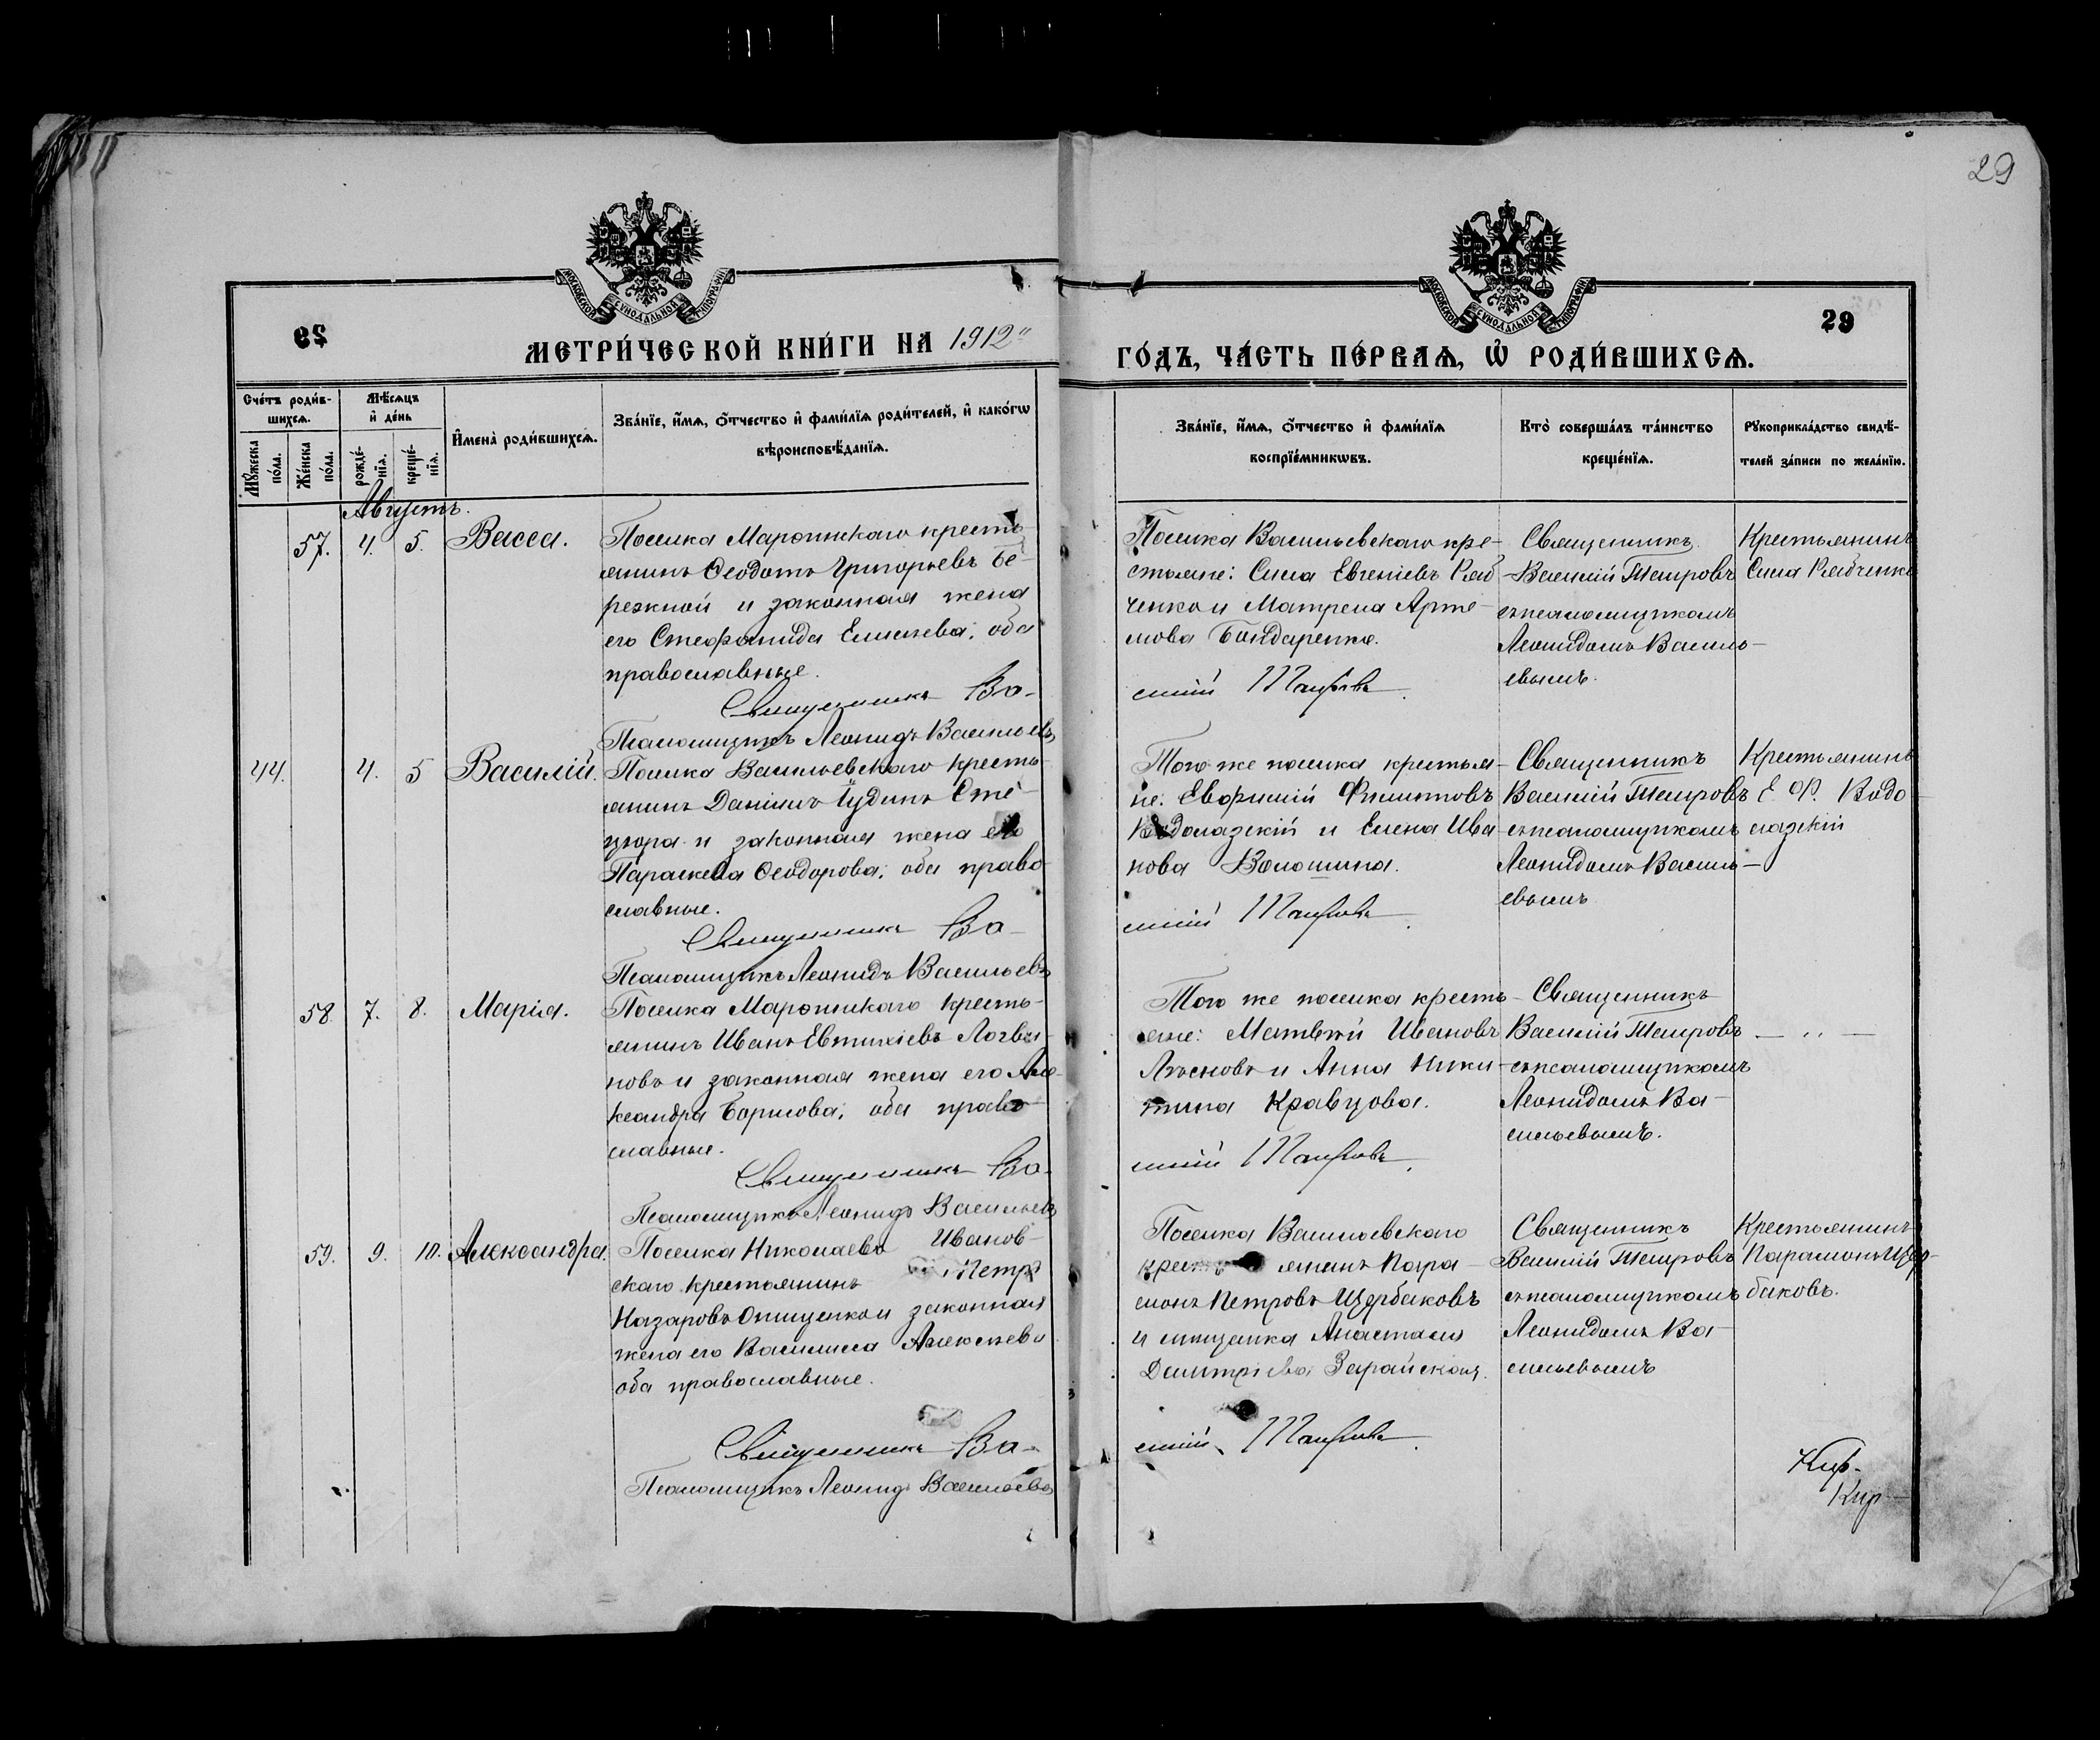 29
МОСКОВСКОЙ СѴНОДАЛЬНОЙ ТИПОГРАФІИ
МОСКОВСКОЙ СѴНОДАЛЬНОЙ ТИПОГРАФІИ
29
МЕТРИ́ЧЕСКОЙ КНИ́ГИ НА 1912
ГО́ДЪ, ЧА́СТЬ ПЕ́РВАѦ, Ѡ҆ РОДИ́ВШИХСѦ.
29
Сче́тъ роди́в-
шихсѧ.
Мꙋ́жеска по́ла.
Же́нска по́ла.
Мѣ́сѧцъ
и҆ де́нь
рожде́-
нїѧ.
креще́-
нїѧ.
И҆мена̀ роди́вшихсѧ.
Зва́нїе, и҆́мѧ, ѻ҆́тчество и҆ фами́лїѧ роди́телей, и҆ како́гѡ
вѣроисповѣ́данїѧ.
Зва́нїе, и҆́мѧ, ѻ҆́тчество и҆ фами́лїѧ
воспрїе́мникѡвъ.
Кто̀ соверша́лъ та́инство
креще́нїѧ.
Рꙋкоприкла́дство свидѣ́-
телей за́писи по жела́нїю.
Августъ.
57. 4. 5. Васса.
Поселка Маропинскаго кресть
янинъ Ѳеодотъ Григорьевъ Бе-
режной и законная жена
его Стефанида Елисеева; оба
православные.
Священникъ Ва-
Псаломщикъ Леонидъ Васильевъ
Поселка Васильевскаго кре-
стьяне: Сила Евгеніевъ Ряб
ченко и Матрена Арте-
мова Бондаренко.
силій Таировъ.
Священникъ
Василій Таировъ
съ псаломщикомъ
Леонидомъ Василь-
евымъ.
Крестьянинъ
Сила Рябченко
44. 4. 5 Василій.
Поселка Васильевскаго кресть
янинъ Даніилъ Іудинъ Сте-
цюра и законная жена его
Параскева Ѳеодорова; оба право
славные.
Священникъ Ва-
Псаломщикъ Леонидъ Васильевъ
Того же поселка крестья-
не: Евфимій Филиповъ
Водолазскій и Елена Ива
нова Волошина.
силій Таировъ.
Священникъ
Василій Таировъ
съ псаломщикомъ
Леонидомъ Василь-
евымъ
Крестьянинъ
Е. Ф. Водо
лазскій
58. 7. 8. Марія.
Поселка Маропинскаго кресть-
янинъ Иванъ Евтихіевъ Логви-
новъ и законная жена его Але-
ксандра Борисова; оба право
славные.
Священникъ Ва-
Псаломщикъ Леонидъ Васильевъ
Того же поселка кресть-
яне: Матвѣй Ивановъ
Лѣсновъ и Анна Ники-
тина Кравцова.
силій Таировъ.
Священникъ
Василій Таировъ
съ псаломщикомъ
Леонидомъ Ва-
сильевымъ.
— „ —
59. 9. 10. Александра.
Поселка Николаево Иванов-
скаго крестьянинъ Петръ
Назаровъ Онищенко и законная
жена его Василисса Алексѣева
оба православные.
Священникъ Ва-
Псаломщикъ Леонидъ Васильевъ
Поселка Васильевскаго
крестьянинъ Пара-
монъ Петровъ Щербаковъ
и мѣщанка Анастасія
Димитріева Зарайская.
силій Таировъ.
Священникъ
Василій Таировъ
съ псаломщикомъ
Леонидомъ Ва-
сильевымъ
Крестьянинъ
Парамонъ Щер-
баковъ.